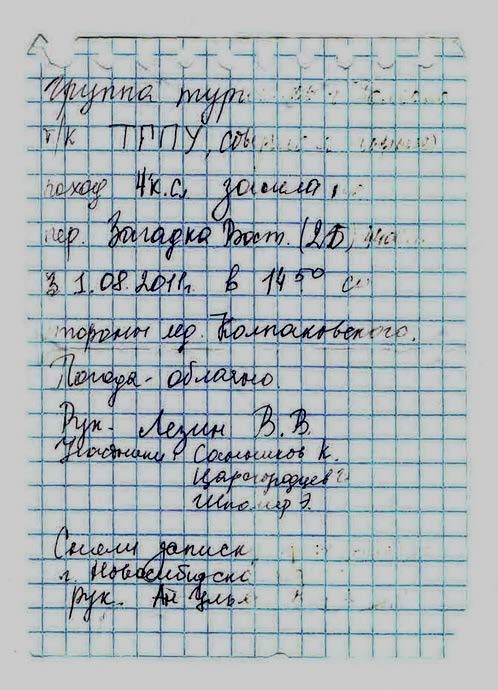 Группа тур
т/к ТГПУ,
поход 4 к.с. зашла
пер. Загадка Вост. (2Б,
31.08.2011г. в 14 50 с
тороны лед. Колпаковского.
Погода - облачно
Рук. Лезин В. В.
Участники Санников К.
Царегородцев
Шпомер Э.
Сняли записк
г. Новосибирск
рук.